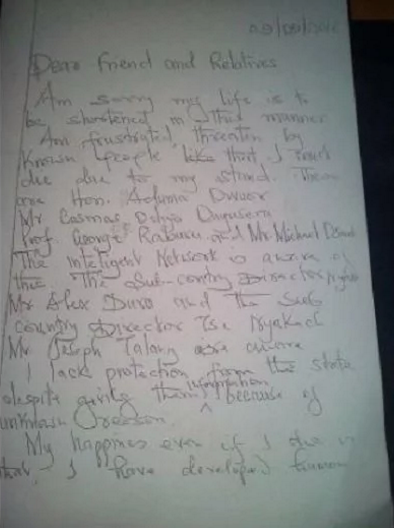 Dear Friend and Relatives
Am sorry my life is to
be shortened in that manner
Am frustrated, threaten by
known people like that, I must
die due to my stand. These
are Hon. Aduma Owuor
Mr Casmas
Prof. George and Mr Michael
The Intelligent Network is aware of
this. The Sub-contry Director
Mr Alex and the Sub
country Director Tse Nyakach
Mr Joseph Talany are aware
I lack protection from the state
despite giving them information because of
unknown reason.
My happines even if I die is
that, I have developed human